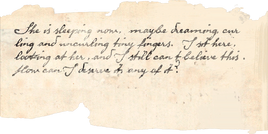 She is sleeping now, maybe dreaming, cur
ling and uncurling tiny fingers. I sit here,
looking at her, and I still can't believe this.
How can I deserve it, any of it?